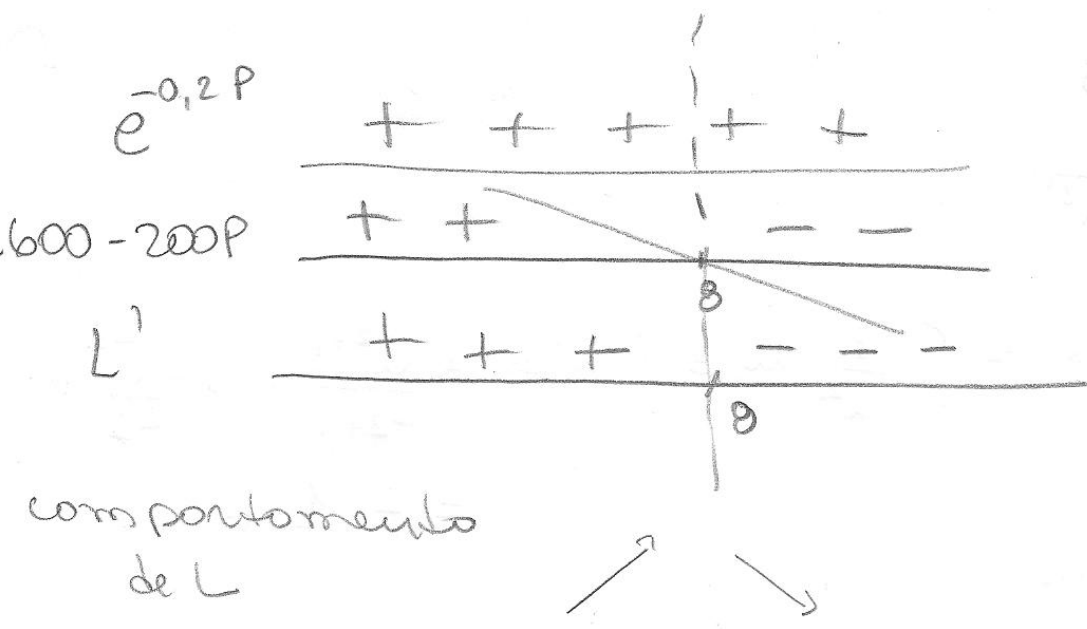 e^{-0,2P} + + + + +
1600-200P + + - -
8
L' + + + - - -
8
comportamento
de L